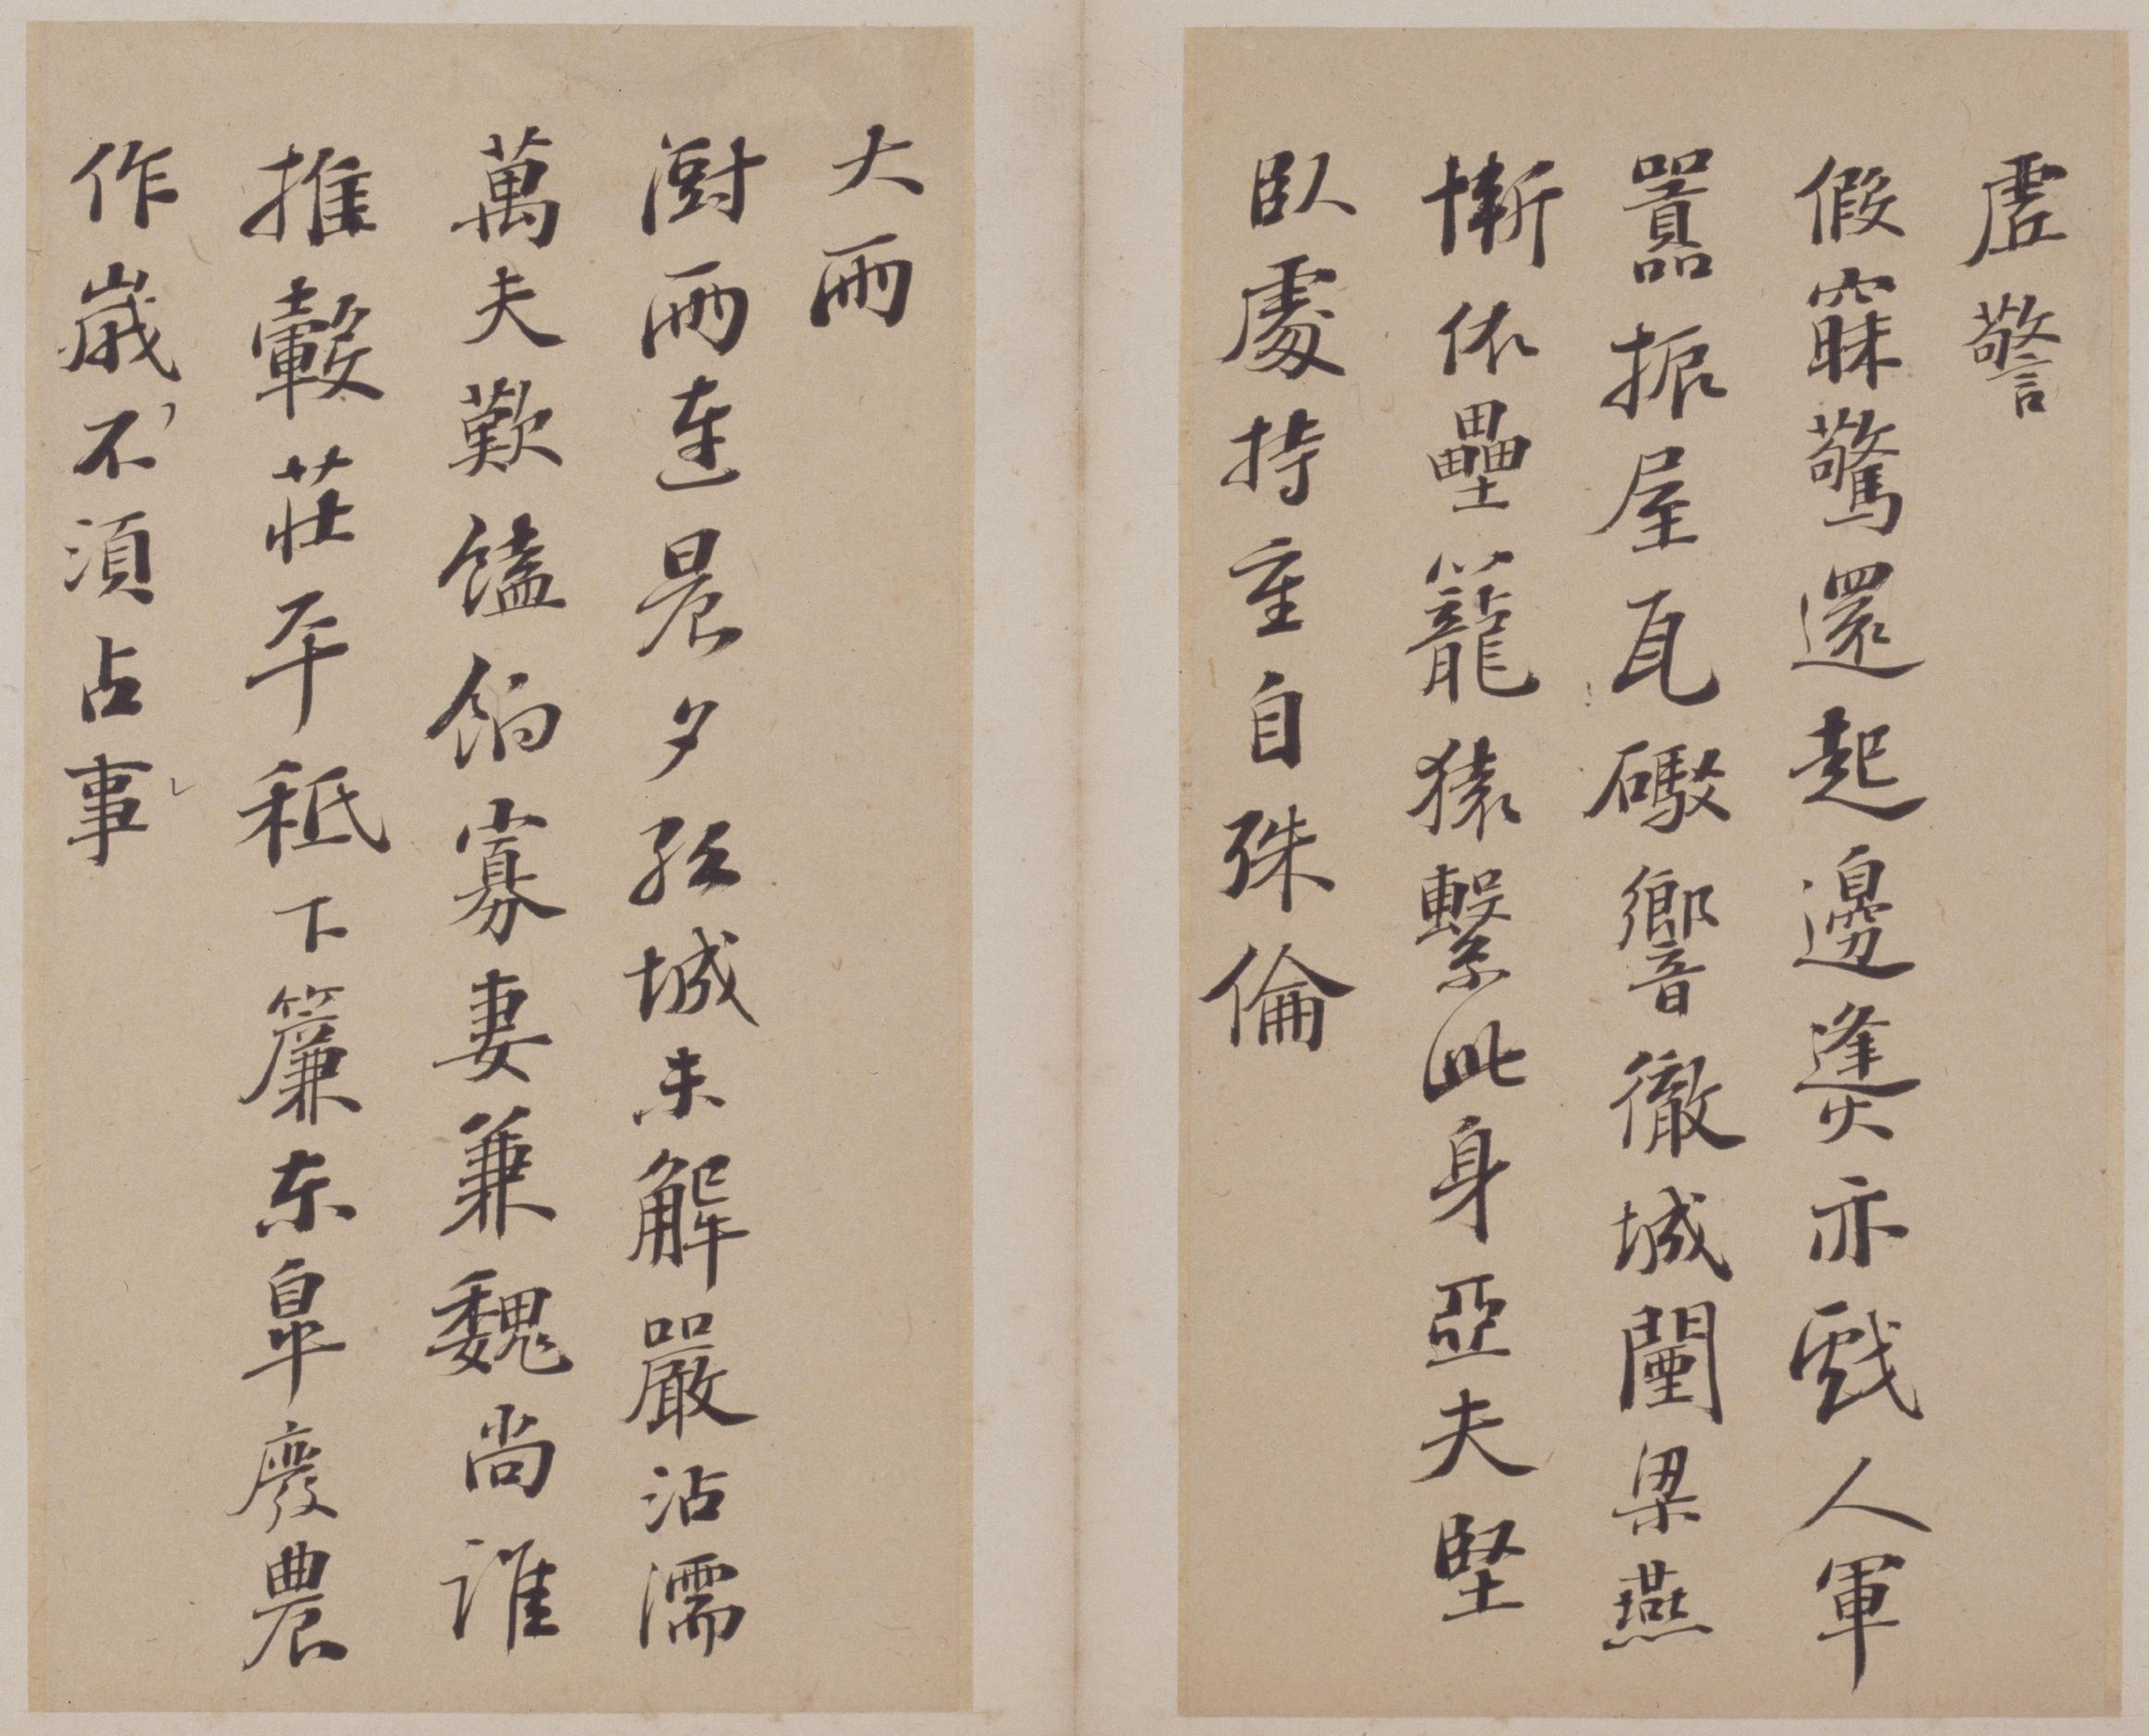 虛警
假寐驚還起邊逢火亦戲人軍
囂振屋瓦礮響徹城闉梁燕
慚依壘籠猿繫此身亞夫堅
臥處持重自殊倫
大雨
澍雨連晨夕孤城未解嚴沾濡
萬夫歎饁餉寡妻兼魏尚誰
推轂莊平秪下簾東皋廢農
作歲不須占事